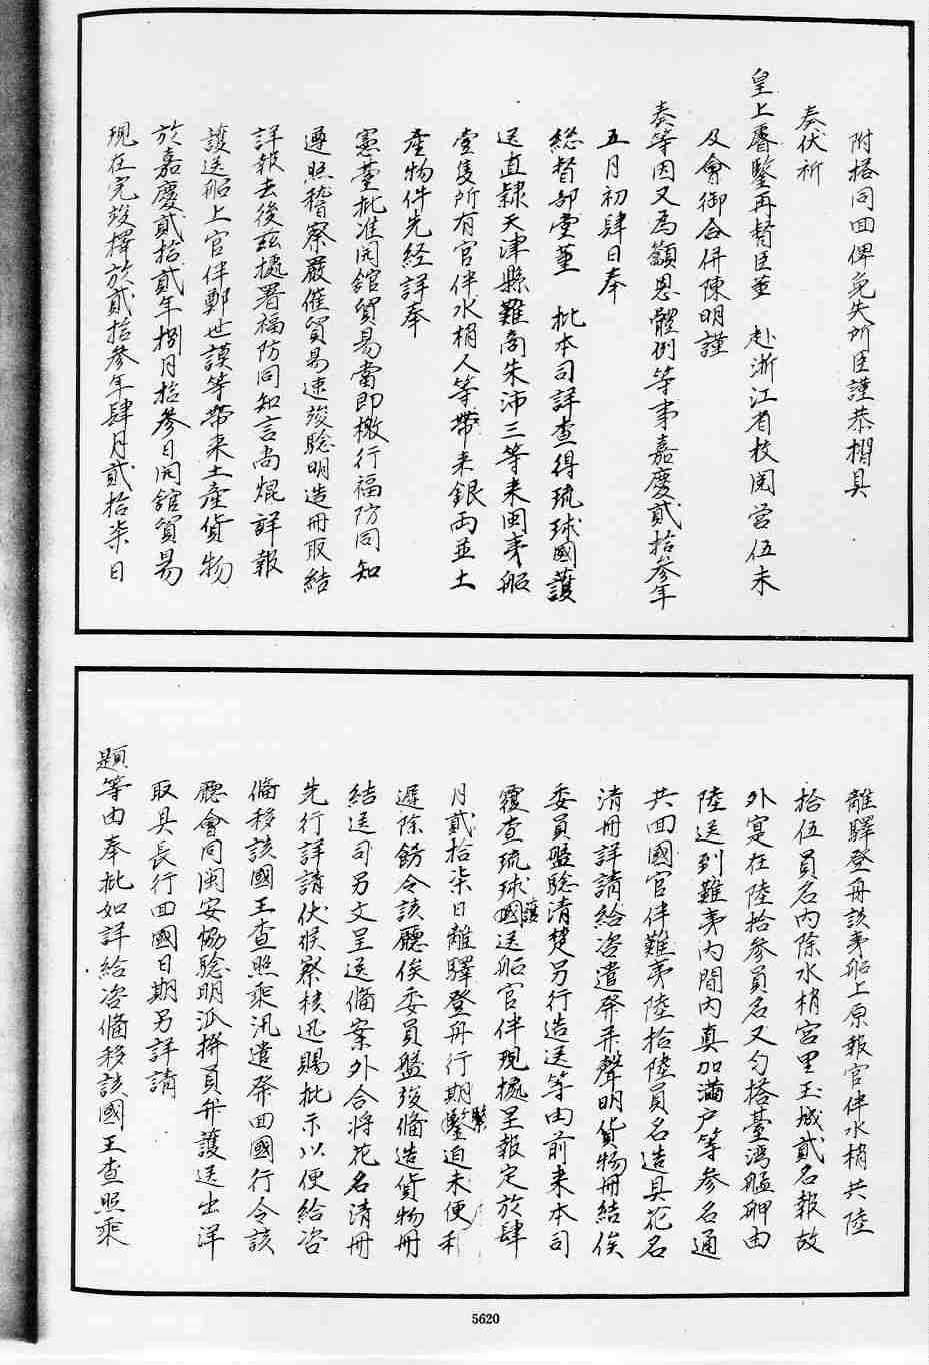 附搭同回俾免失所臣謹恭摺具
奏伏祈
皇上睿鑒再督臣董 赴浙江省校閱營伍未
及會御合併陳明謹
奏等因又為籲恩體例等事嘉慶貳拾參年
五月初肆日奉
總督部堂董 批本司詳查得琉球國護
送直隸天津縣難商朱沛三等來閩夷船
壹隻所有官伴水梢人等帶來銀兩並土
產物件先經詳奉
憲臺批准開館貿易當即檄行福防同知
遵照稽察嚴催貿易速竣驗明造冊取結
詳報去後茲據署福防同知言尚焜詳報
護送船上官伴鄭世謨等帶來土產貨物
於嘉慶貳拾貳年捌月拾參日開館貿易
現在完竣擇於貳拾參年肆月貳拾柒日
離驛登舟該夷船上原報官伴水梢共陸
拾伍員名內除水梢宮里玉城貳名報故
外寔在陸拾參員名又勻搭臺灣艋舺由
陸送到難夷內間內真加滿戶等參名通
共回國官伴難夷陸拾陸員名造具花名
清冊詳請給咨遣發并聲明貨物冊結俟
委員盤驗清楚另行造送等由前來本司
覆查琉球國護送船官伴現據呈報定於肆
月貳拾柒日離驛登舟行期緊迫未便稍
遲除飭令該廳俟委員盤竣備造貨物冊
結送司另文呈送備案外合將花名清冊
先行詳請伏候察核迅賜批示以便給咨
備移該國王查照乘汛遣發回國行令該
廳會同閩安協驗明派撥員弁護送出洋
取具長行回國日期另詳請
題等由奉批如詳給咨備移該國王查照乘
5620